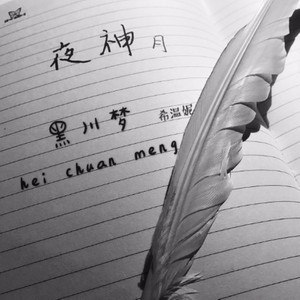 夜神月
黑川梦 希温妮
hei chuan meng